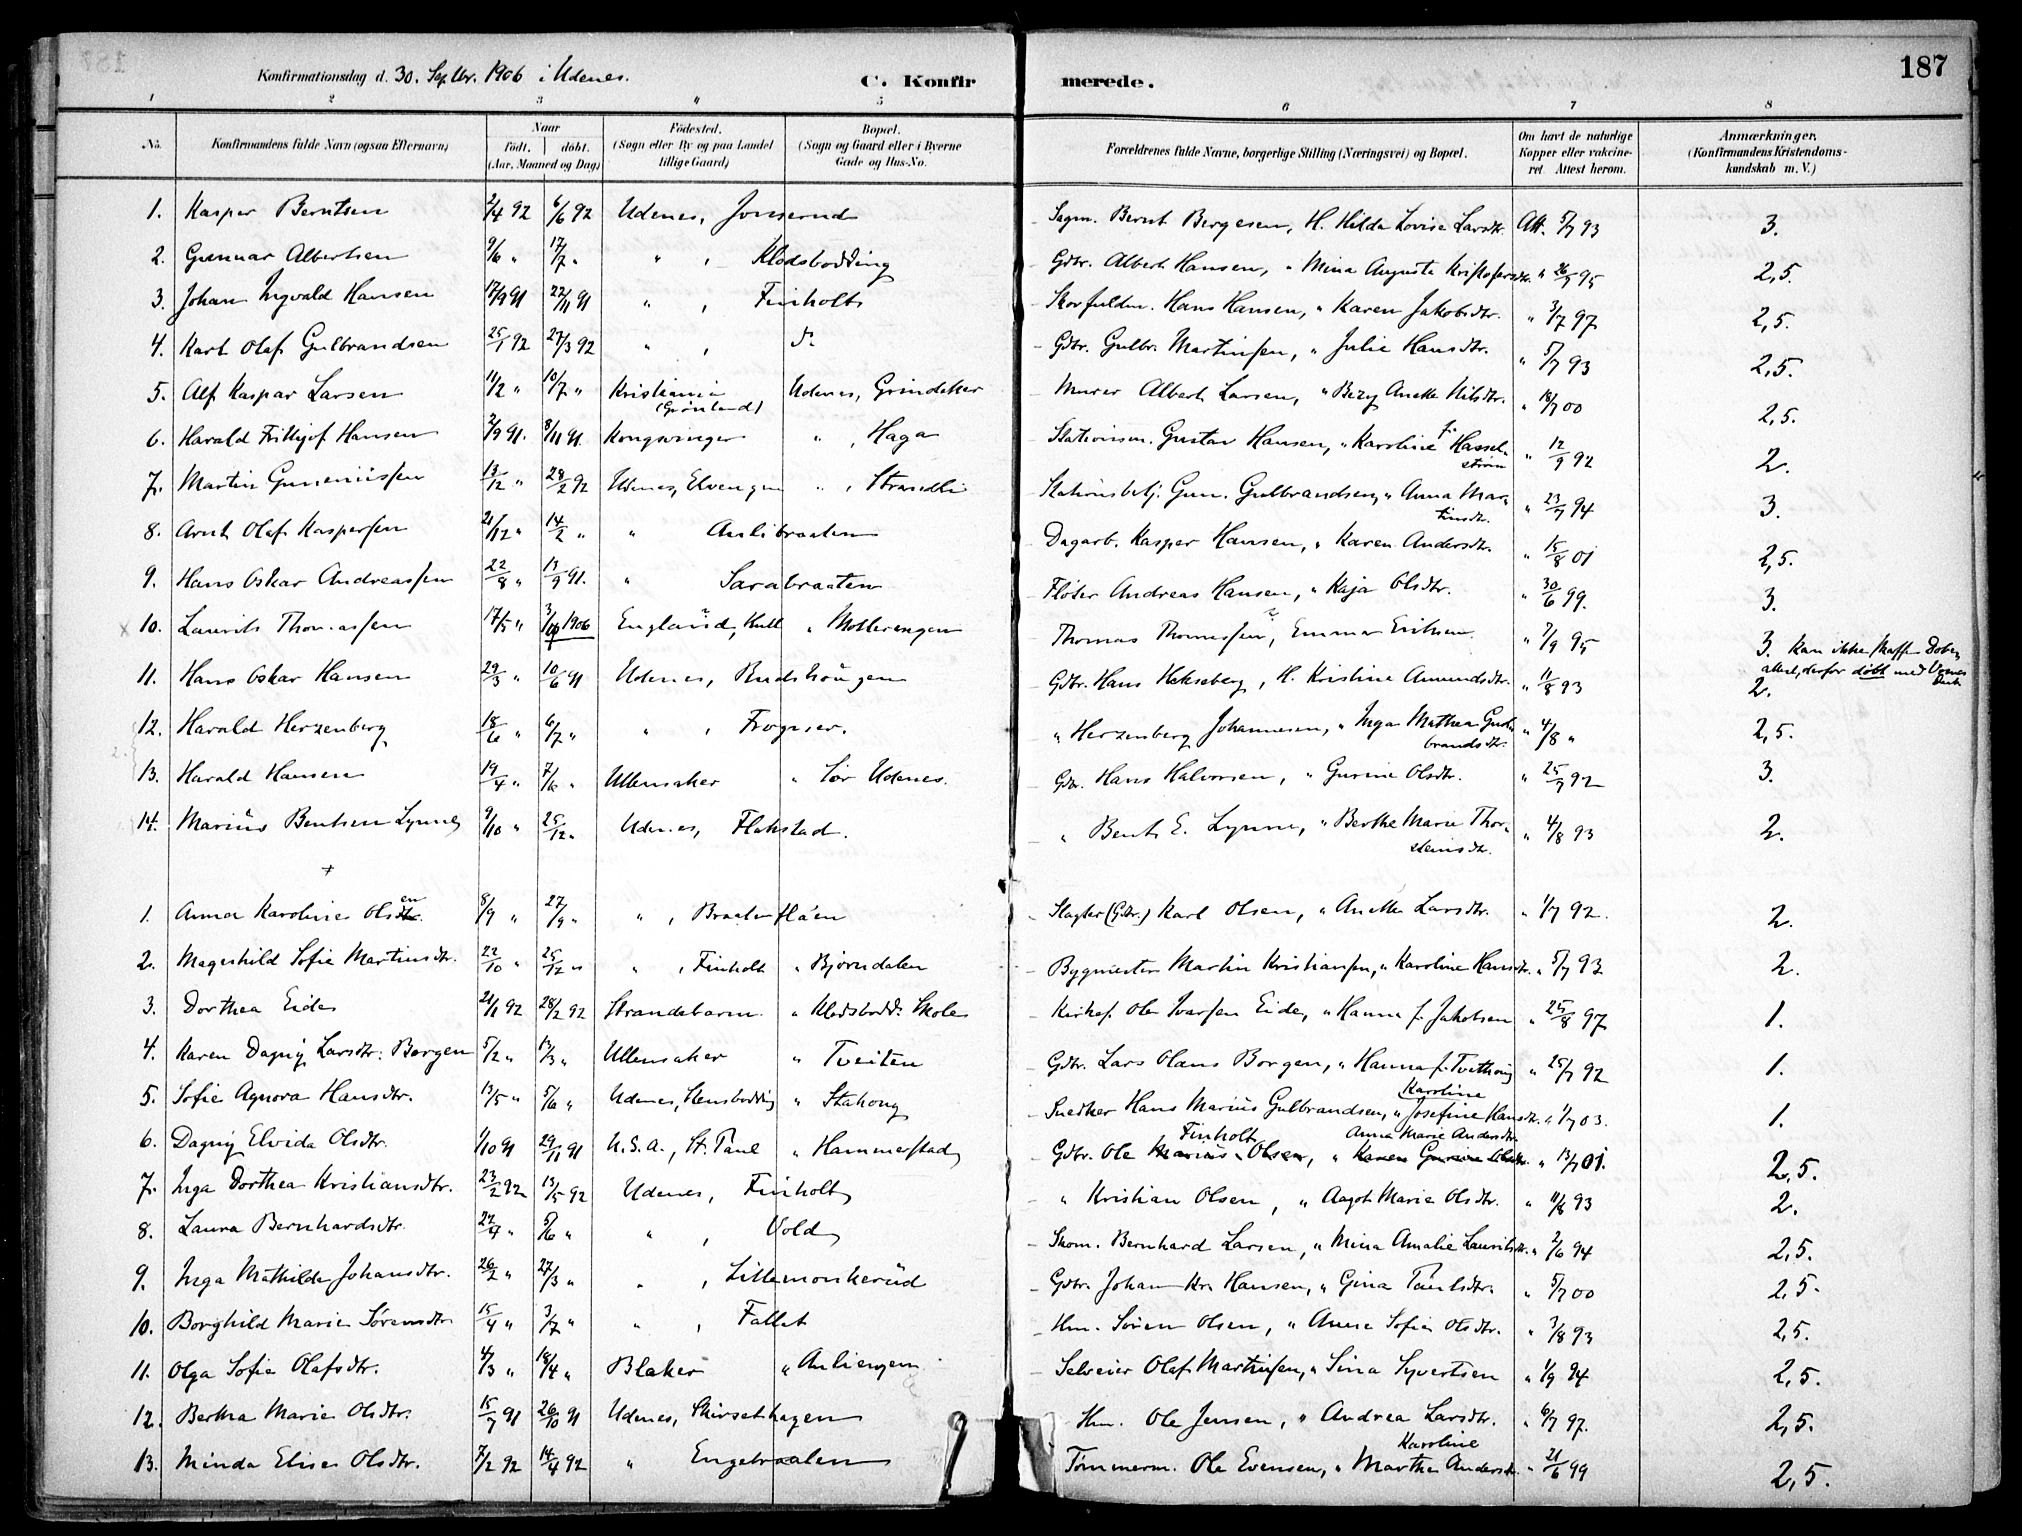 187
Konfirmationsdag d. 30. Septbr. 1906 i Udenes.
C. Konfirmerede.
1 2 3 " 5 6 7 8
No. Konfirmandens fulde Navn (ogsaa Efternavn) Naar født. døbt. (Aar, Maaned og Dag) Fødested. (Sogn eller By og paa Landet tillige Gaard) Bopæl. (Sogn og Gaard eller i Byerne Gade og Hus-No. Forældrenes fulde Navne, borgerlige Stilling (Næringsvei) og Bopæl. Om havt de naturlige Kopper eller vaccineret. Attest herom. Anmærkninger. (Konfirmandens Kristendomskundskab m. V.)
1. Kasper Berntsen 2/4 92 6/6 92 Udenes, Jonsrud Sagm. Bernt Bergesen, H. Hilda Lovise Larsdtr. Att. 5/7 93 3.
2. Gunnar Albertsen 9/6 " 17/7 " " , Klodsbødding Gdbr. Albert Hansen, " Mina Augusta Kristofersdtr. " 26/7 95 2,5.
3. Johan Ingvald Hansen 17/9 91 22/11 91 " , Finholt Skovfuldm. Hans Hansen, " Karen Jakobsdtr. " 3/7 97 2,5.
4. Karl Olaf Gulbrandsen 25/1 92 27/3 92 " , do Gdbr. Gulbr. Martinsen, " Julie Hansdtr. " 5/7 93 2,5.
5. Alf Kaspar Larsen 11/2 " 10/7 " Kristiania (Grønland) Udenes, Grindaker Murer Albert Larsen, " Anette Nilsdtr. " 18/7 00 2,5.
6. Harald Frithjof Hansen 2/9 91. 8/11 91 Kongsvinger " , Haga Stationsm. Gustav Hansen, " Karoline f. Hasselstrøm " 12/9 92 2.
7. Martin Gunerius\sen 13/12 " 28/2 92 Udenes, Elvengen " , Strandli Stationsbetj. Gun. Gulbrandsen, " Anna Martinsdtr. " 23/7 94 3.
8. Arnt Olaf Kaspersen 21/12 " 14/2 " " Aulibraaten Dagarb. Kasper Hansen, " Karen Andersdtr. " 15/8 01 2,5.
9. Hans Oskar Andreassen 22/8 " 13/9 91. " Sarabraaten Fløter Andreas Hansen, " Kaja Olsdtr. " 30/6 99. 3.
x 10. Laurits Thomassen 17/5 " 1906 England, Hull " Mollerengen Thomas Thomessen, Emma Eriksen " 7/9 95 3. Kan ikke skaffe Dobsattest, derfor døbt med
11. Hans Oskar Hansen 29/3 " 10/6 91 Udenes, Rudshaugen Gdbr. Hans Hekseberg, H. Kristine Amundsdtr. " 11/8 93 2.
12. Harald Herzenberg 18/6 " 6/7 " " , Frogner. " Herzenberg Johannesen, " Inga Mathea Gudbrandsdtr. " 4/8 " 2,5.
13. Harald Hansen 19/4 " 7/6 " Ullensaker " Sør Udenes. Gdbr. Hans Halvorsen, " Gurine Olsdtr. " 25/7 92 3.
14. Marius Bentsen Lynne 9/10 " 25/12 " Udenes, Flakstad. " Bent E. Lynne, " Berthe Marie Thorsteinsdtr. " 4/8 93 2.
+
1. Anna Karoline Olsen 8/9 " 27/9 " " , Braatenflaen Slagter (Gdbr.) Karl Olsen, " Anette Larsdtr. " 1/7 92. 2.
2. Magnhild Sofie Martinsdtr. 22/10 " 25/12 " " , Finholt " Bjørndalen Bygmester Martin Kristiansen, " Karoline Hansdtr. " 5/7 93 2.
3. Dorthea Eide 21/1 92 28/2 92 Strandebarm " Klodsbødd. Skole Kirkes. Ole Ivarsen Eide, " Hanna f. Jakobsen " 25/8 97 1.
4. Karen Dagny Larsdtr. Borgen 5/2 " 13/3 " Ullensaker " Tveiten Gdbr. Lars Olaus Borgen, " Hanna f. Tveithoug " 25/7 92 1.
5. Sofie Agnora Hansdtr. 13/5 " 5/6 " Udenes, Stensbødding " Stahoug Snedker Hans Marius Gulbrandsen, " Karoline Josefine Hansdtr. " 1/7 03. 1.
6. Dagny Elvida Olsdtr. 1/10 91 29/11 91 U.S.A., St. Paul " Hammerstad Gdbr. Ole Finholt Marius Olsen, " Anna Marie Andersdtr. Karen Gurine Olsdtr. " 13/7 01. 2,5.
7. Inga Dorthea Kristiansdtr. 23/2 92 13/5 92 Udenes, Finholt " Kristian Olsen, " Aagot Marie Olsdtr. " 11/8 93 2.
8. Laura Bernhardsdtr. 27/4 " 5/6 " " , Vold Skom. Bernhard Larsen, " Mina Amalie Lauritsdtr. " 2/6 94 2,5.
9. Inga Mathilde Johansdtr. 26/2 " 27/3 " " , Lillemonkerud Gdbr. Johan Kr. Hansen, " Gina Paulsdtr. " 5/7 00 2,5.
10. Borghild Marie Sørensdtr. 15/4 " 3/7 " " , Fallet Hm. Søren Olsen, " Anne Sofie Olsdtr. " 3/8 93 2,5.
11. Olga Sofie Olafsdtr. 4/3 " 18/4 " Blaker " Auliengen Selveier Olaf Martinsen, " Sina Syvertsen " 1/9 94 2,5.
12. Bertha Marie Olsdtr. 15/7 91 26/10 91 Udenes, Skirsethagen Hm. Ole Jensen, " Andrea Larsdtr. " 6/7 97. 2,5.
13. Minda Elise Olsdtr. 7/2 92 14/4 92 " Engebraaten Tømmerm. Ole Evensen, " Karoline Marthe Andersdtr. " 21/6 99 2,5.